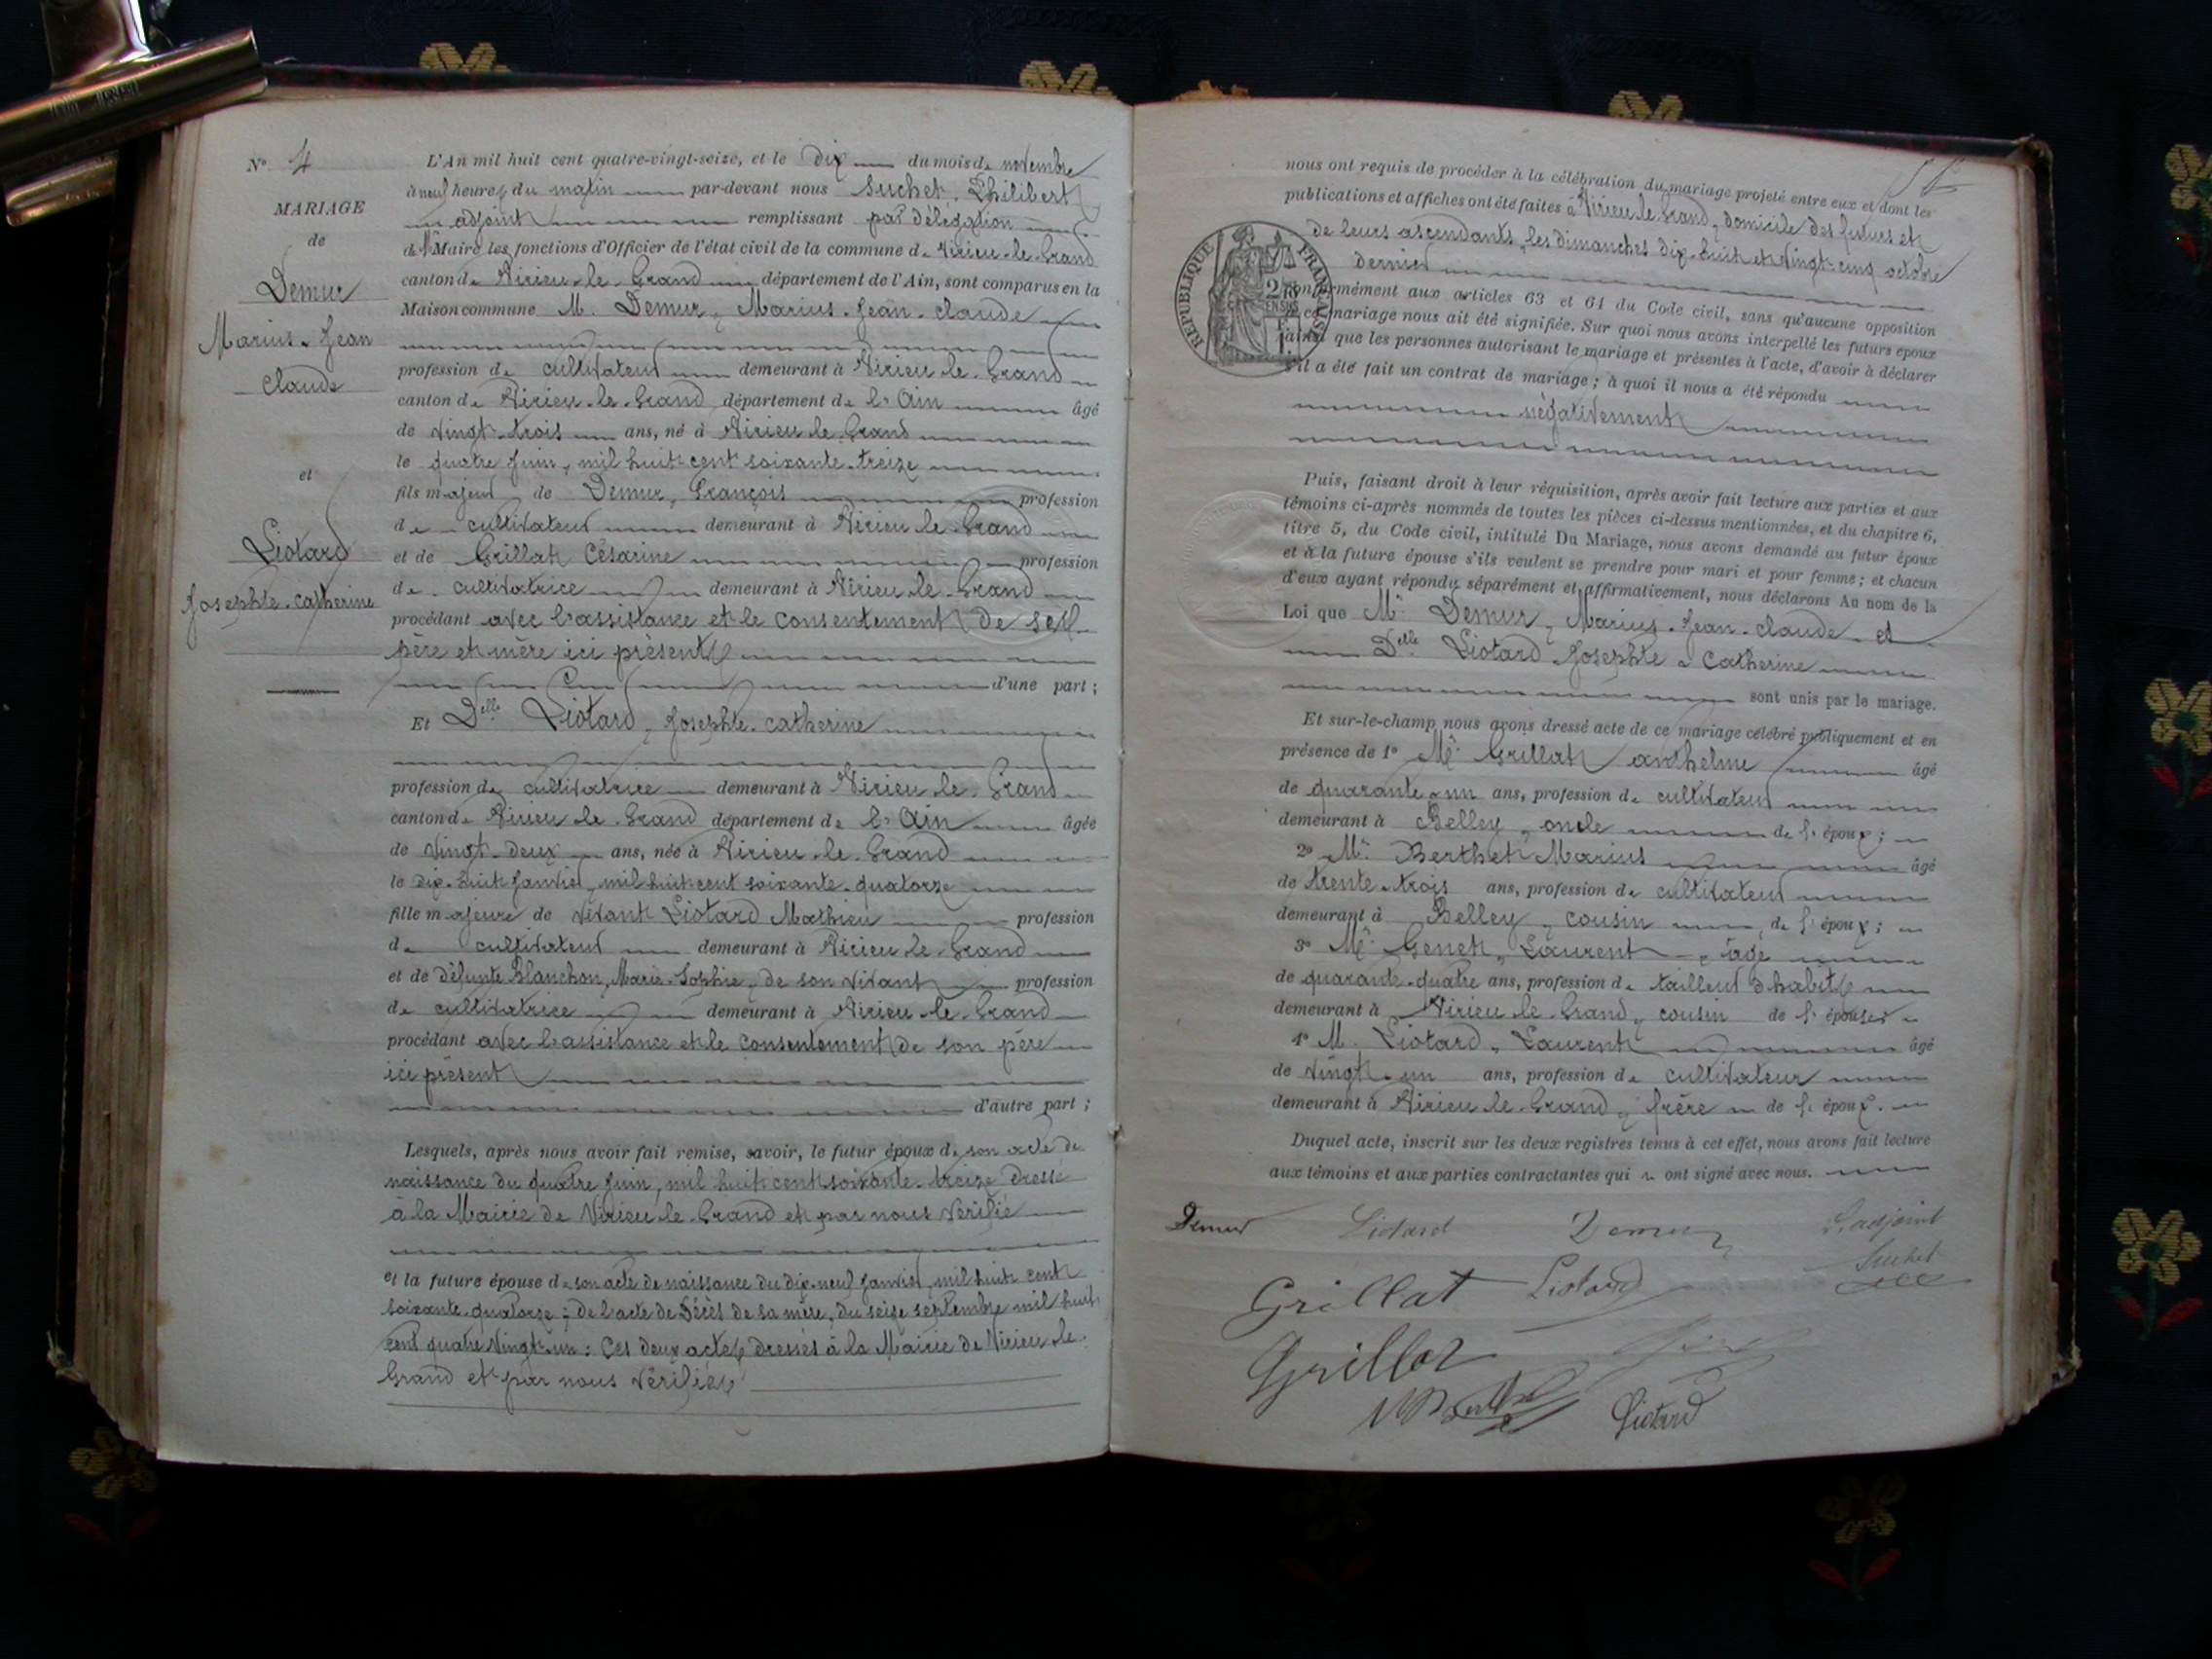 N° 4
MARIAGE
de
Demur
Marius-Jean
Claude
et
Liotard
Josephte-Catherine
L'An mil huit cent quatre-vingt-seize, et le dix du mois de novembre
à neuf heures du matin par-devant nous Suchet, Philibert
adjoint remplissant par délégation
de Mr Maire les fonctions d'Officier de l'état civil de la commune de Virieu-le-Grand
canton de Virieu-le-Grand département de l'Ain, sont comparus en la
Maison commune M. Demur, Marius-Jean-Claude
profession de cultivateur demeurant à Virieu-le-Grand
canton de Virieu-le-Grand département de l'Ain âgé
de vingt-trois ans, né à Virieu-le-Grand
le quatre juin, mil huit cent soixante-treize
fils majeur de Demur, François profession
de cultivateur demeurant à Virieu-le-Grand
et de Grillat Césarine profession
de cultivatrice demeurant à Virieu-le-Grand
procédant avec l'assistance et le consentement de ses
père et mère ici présents
d'une part ;
Et Delle Liotard, Josephte-Catherine
profession de cultivatrice demeurant à Virieu-le-Grand
canton de Virieu-le-Grand département de l'Ain âgée
de vingt-deux ans, née à Virieu-le-Grand
le dix-huit janvier, mil huit cent soixante-quatorze
fille majeure de vivant Liotard Mathieu profession
de cultivateur demeurant à Virieu-le-Grand
et de défunte Blanchon, Marie-Sophie, de son vivant profession
de cultivatrice demeurant à Virieu-le-Grand
procédant avec l'assistance et le consentement de son père
ici présent
d'autre part ;
Lesquels, après nous avoir fait remise, savoir, le futur époux de son acte de
naissance du quatre juin, mil huit cent soixante-treize dressé
à la Mairie de Virieu-le-Grand et par nous vérifié
et la future épouse de son acte de naissance du dix-neuf janvier, mil huit cent
soixante-quatorze ; de l'acte de décès de sa mère, du seize septembre mil huit
cent quatre vingt-un : Ces deux actes dressés à la Mairie de Virieu-le-
Grand et par nous vérifiés
nous ont requis de procéder à la célébration du mariage projeté entre eux et dont les
publications et affiches ont été faites à Virieu-le-Grand, domicile des futurs et
de leurs ascendants, les dimanches dix-huit et vingt-cinq octobre
dernier
REPUBLIQUE FRANÇAISE
conformément aux articles 63 et 64 du Code civil, sans qu'aucune opposition
à ce mariage nous ait été signifiée. Sur quoi nous avons interpellé les futurs époux
ainsi que les personnes autorisant le mariage et présentes à l'acte, d'avoir à déclarer
s'il a été fait un contrat de mariage ; à quoi il nous a été répondu
négativement
Puis, faisant droit à leur réquisition, après avoir fait lecture aux parties et aux
témoins ci-après nommés de toutes les pièces ci-dessus mentionnées, et du chapitre 6,
titre 5, du Code civil, intitulé Du Mariage, nous avons demandé au futur époux
et à la future épouse s'ils veulent se prendre pour mari et pour femme ; et chacun
d'eux ayant répondu séparément et affirmativement, nous déclarons Au nom de la
Loi que Mr Demur, Marius-Jean-Claude et
Delle Liotard Josephte-Catherine
sont unis par le mariage.
Et sur-le-champ nous avons dressé acte de ce mariage célébré publiquement et en
présence de 1° Mr Grillat anthelme âgé
de quarante-un ans, profession de cultivateur
demeurant à Belley, oncle de l'époux ;
2° Mr Berthet Marius âgé
de trente-trois ans, profession de cultivateur
demeurant à Belley, cousin de l'époux ;
3° Mr Genet, Laurent, âgé
de quarante-quatre ans, profession de tailleur d'habits
demeurant à Virieu-le-Grand, cousin de l'épouse
4° M. Liotard, Laurent âgé
de vingt-un ans, profession de cultivateur
demeurant à Virieu-le-Grand, frère de l'époux.
Duquel acte, inscrit sur les deux registres tenus à cet effet, nous avons fait lecture
aux témoins et aux parties contractantes qui ont signé avec nous.
Demur Liotard Demur L'adjoint
Suchet
Grillat Liotard
Liotard